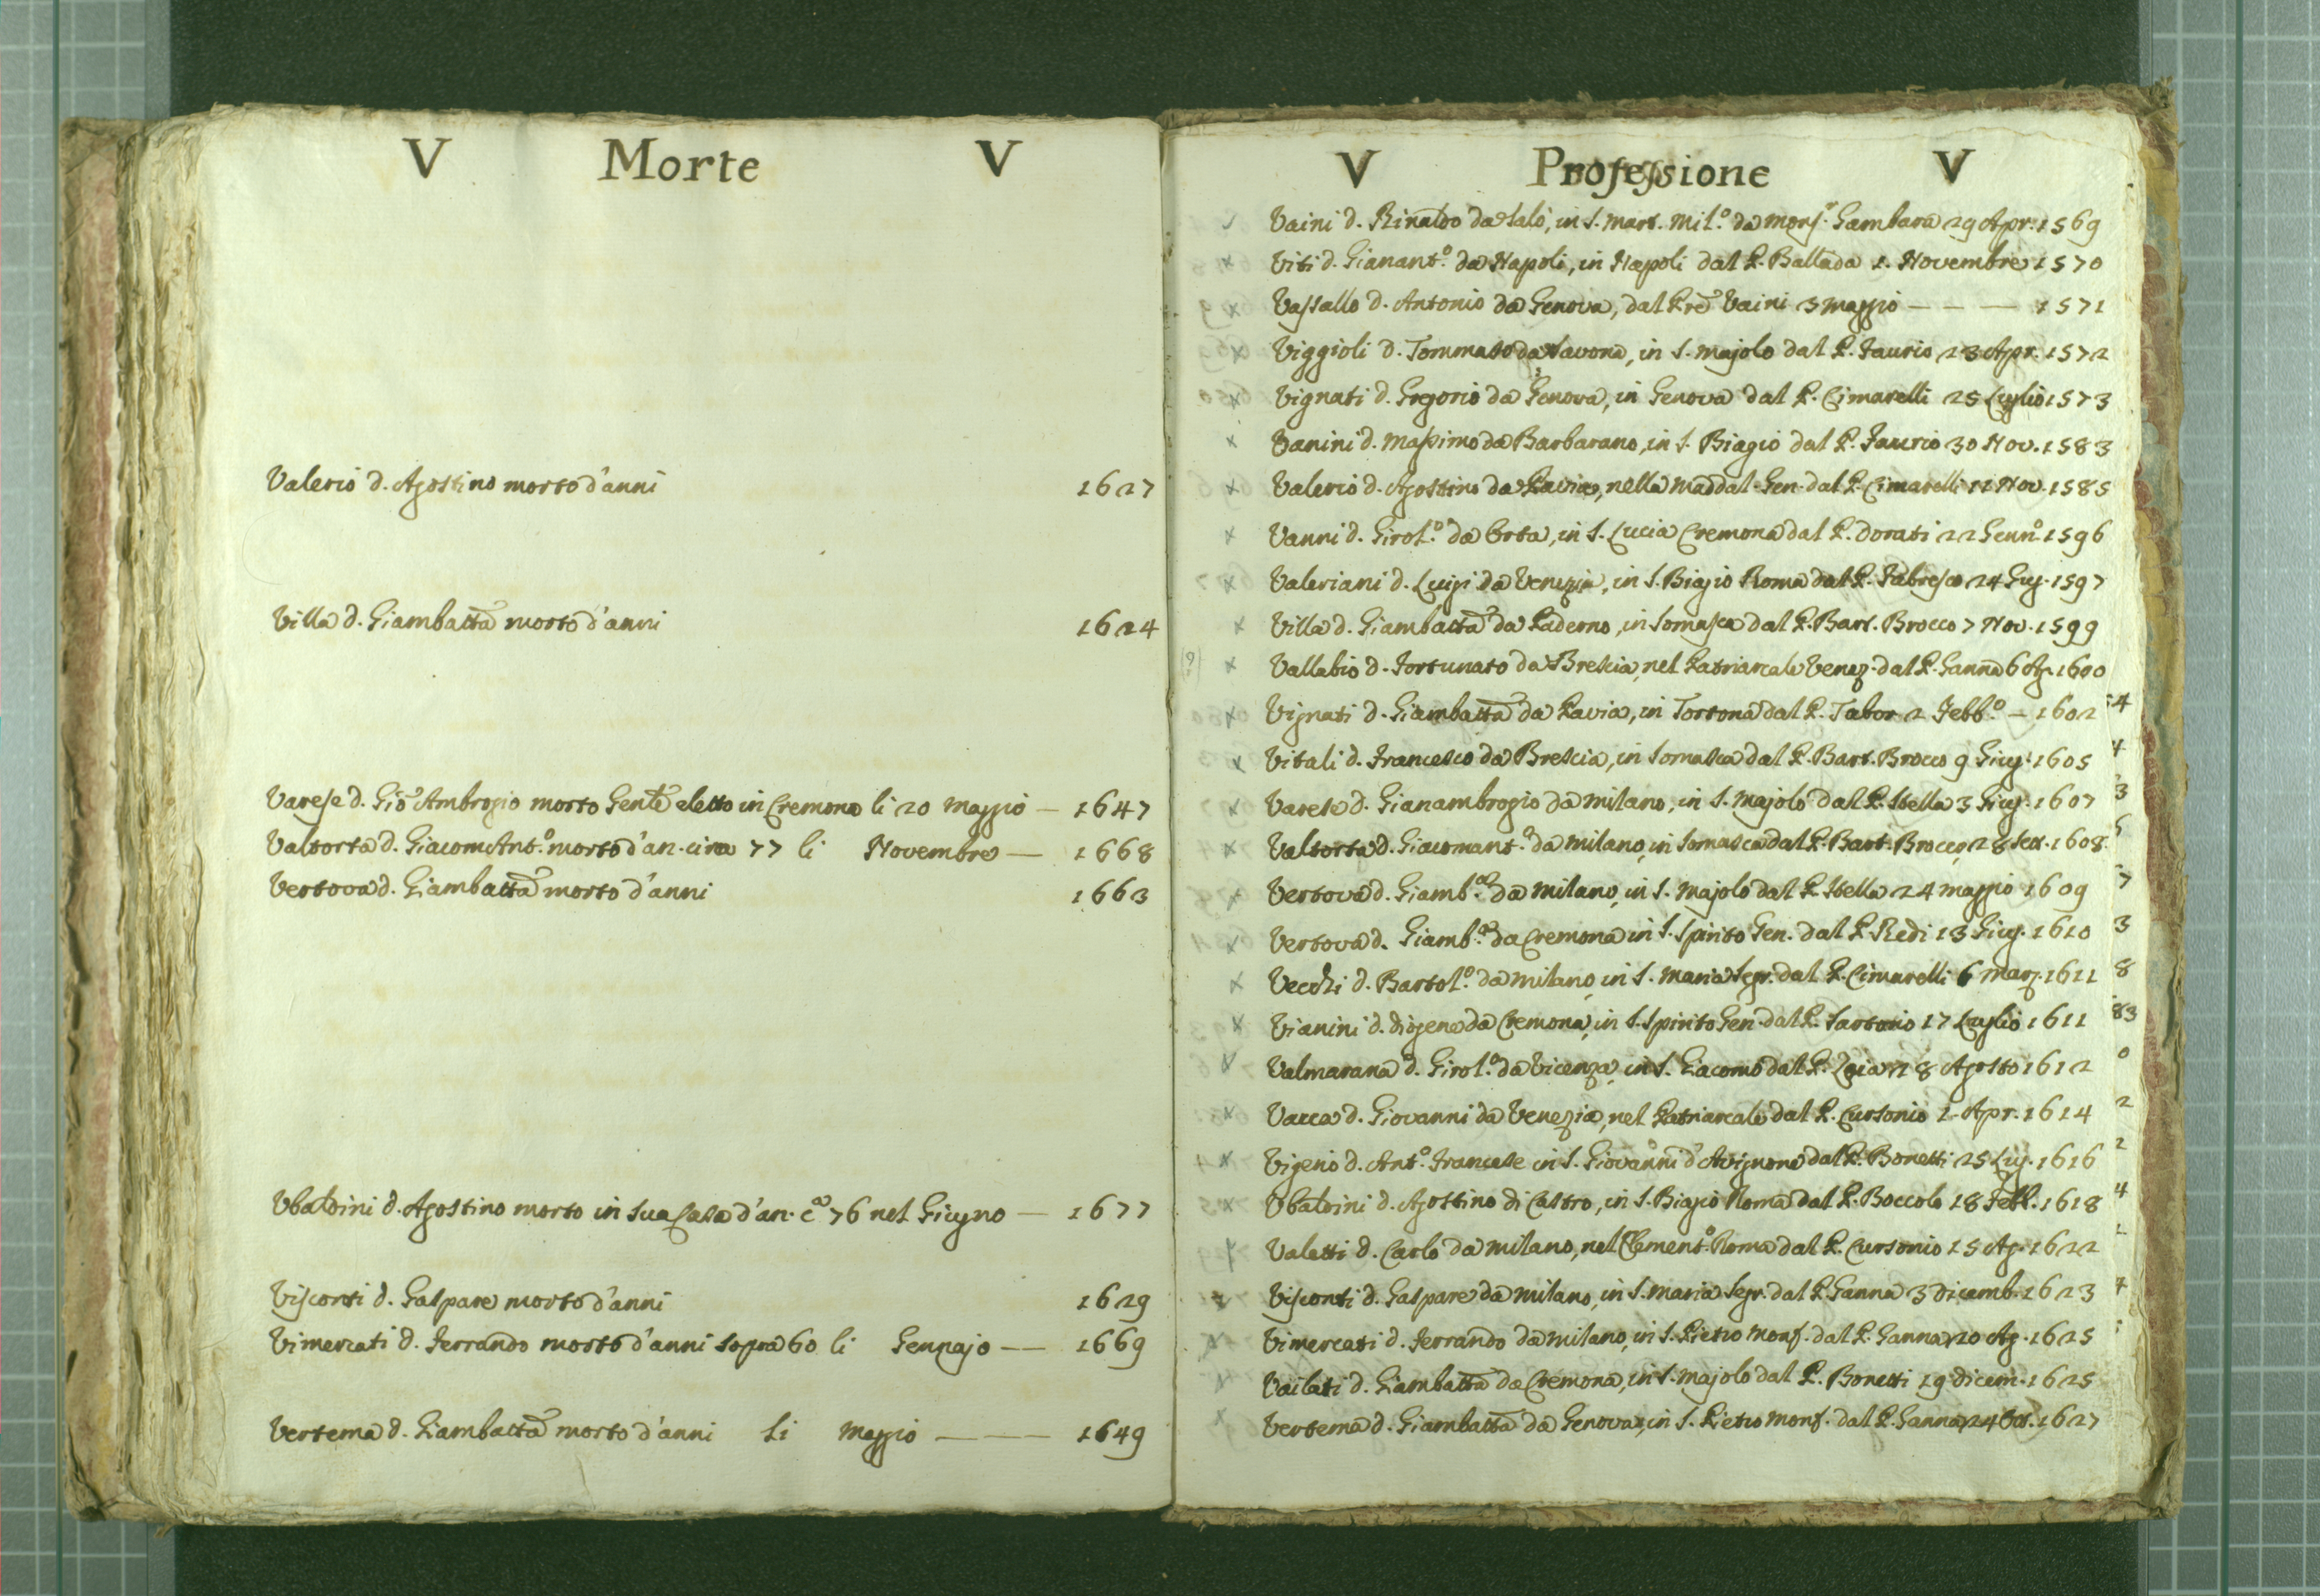 V Morte V
Valerio d. Agostino morto d'anni 1627
Villa d. Giambatta morto d'anni 1624
Varese d. Gio Ambrogio morto Gentè eletto in Cremona li 20 Maggio — 1647
Valtorta d. Giacom Ant.º morto d'an. circa 77 li Novembre — 1668
Vertova d. Giambatta morto d'anni 1663
Ubaldini d. Agostino morto in sua Casa d'an. cª 76 nel Giugno — 1677
Visconti d. Gaspare morto d'anni 1629
Vimercati d. Ferrando morto d'anni sopra 60 li Gennajo — 1669
Vertema d. Giambatta morto d'anni li Maggio — 1649
V Professione V
Vaini d. Rinaldo da Salò, in S. Mart. Mil.º da Mons.r Gambara 29 Apr. 1569
Viti d. Gianant.º da Napoli, in Napoli dal P. Ballada 1. Novembre 1570
Vassallo d. Antonio da Genova, dal Pre Vaini 3 Maggio — — — 1571
Viggioli d. Tommaso da Savona, in S. Majolo dal P. Faurio 23 Apr. 1572
Vignati d. Gregorio da Genova, in Genova dal P. Cimarelli 25 Luglio 1573
Vanini d. Massimo da Barbarano, in S. Biagio dal P. Faurio 30 Nov. 1583
Valerio d. Agostino da Pavia, nella Maddal. Gen. dal P. Cimarelli 11 Nov. 1585
Vanni d. Girol.º da Orta, in S. Lucia Cremona dal P. Dorati 22 Genn.º 1596
Valeriani d. Luigi da Venezia, in S. Biagio Roma dal P. Fabresco 24 Giug. 1597
Villa d. Giambatta da Paderno, in Somasca dal P. Bart. Brocco 7 Nov. 1599
Vallabio d. Fortunato da Brescia, nel Patriarcale Venez. dal P. Ganna 6 Ag. 1600
Vignati d. Giambatta da Pavia, in Tortona dal P. Tabor 2 Febb.º — 1602
Vitali d. Francesco da Brescia, in Somasca dal P. Bart. Brocco 9 Giug. 1605
Varese d. Gianambrogio da Milano, in S. Majolo dal P. Stella 3 Giug. 1607
Valtorta d. Giacomant.º da Milano, in Somasca dal P. Bart. Brocco, 28 Set. 1608
Vertova d. Giamb.ª da Milano, in S. Majolo dal P. Stella 24 Maggio 1609
Vertova d. Giamb.ª da Cremona in S. Spirito Gen. dal P. Redi 13 Giug. 1610
Vecchi d. Bartol.º da Milano, in S. Maria Segr. dal P. Cimarelli 6 Marz. 1611
Vianini d. Diogene da Cremona, in S. Spirito Gen. dal P. Sartorio 17 Luglio 1611
Valmarana d. Girol.º da Vicenza, in S. Giacomo dal P. 28 Agosto 1612
Vacca d. Giovanni da Venezia, nel Patriarcale dal P. Cursonio 1. Apr. 1614
Vigenio d. Ant.º Francese in S. Giovanni d'Avignone dal P. Bonetti 25 Lug. 1616
Ubaldini d. Agostino di Castro, in S. Biagio Roma dal P. Boccolo 18 Febb. 1618
Valetti d. Carlo da Milano, nel Clement.º Roma dal P. Cursonio 15 Ag. 1622
Visconti d. Gaspare da Milano, in S. Maria Segr. dal P. Ganna 3 Dicemb. 1623
Vimercati d. Ferrando da Milano, in S. Pietro Monf. dal P. Ganna, 20 Ag. 1625
Vailati d. Giambatta da Cremona, in S. Majolo dal P. Bonetti 19 Dicem. 1625
Vertema d. Giambatta da Genova, in S. Pietro Monf. dal P. Ganna, 24 Ott. 1627